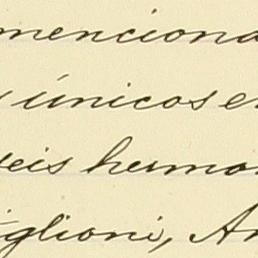 menciona
únicos e
seis hermo
iglioni, An